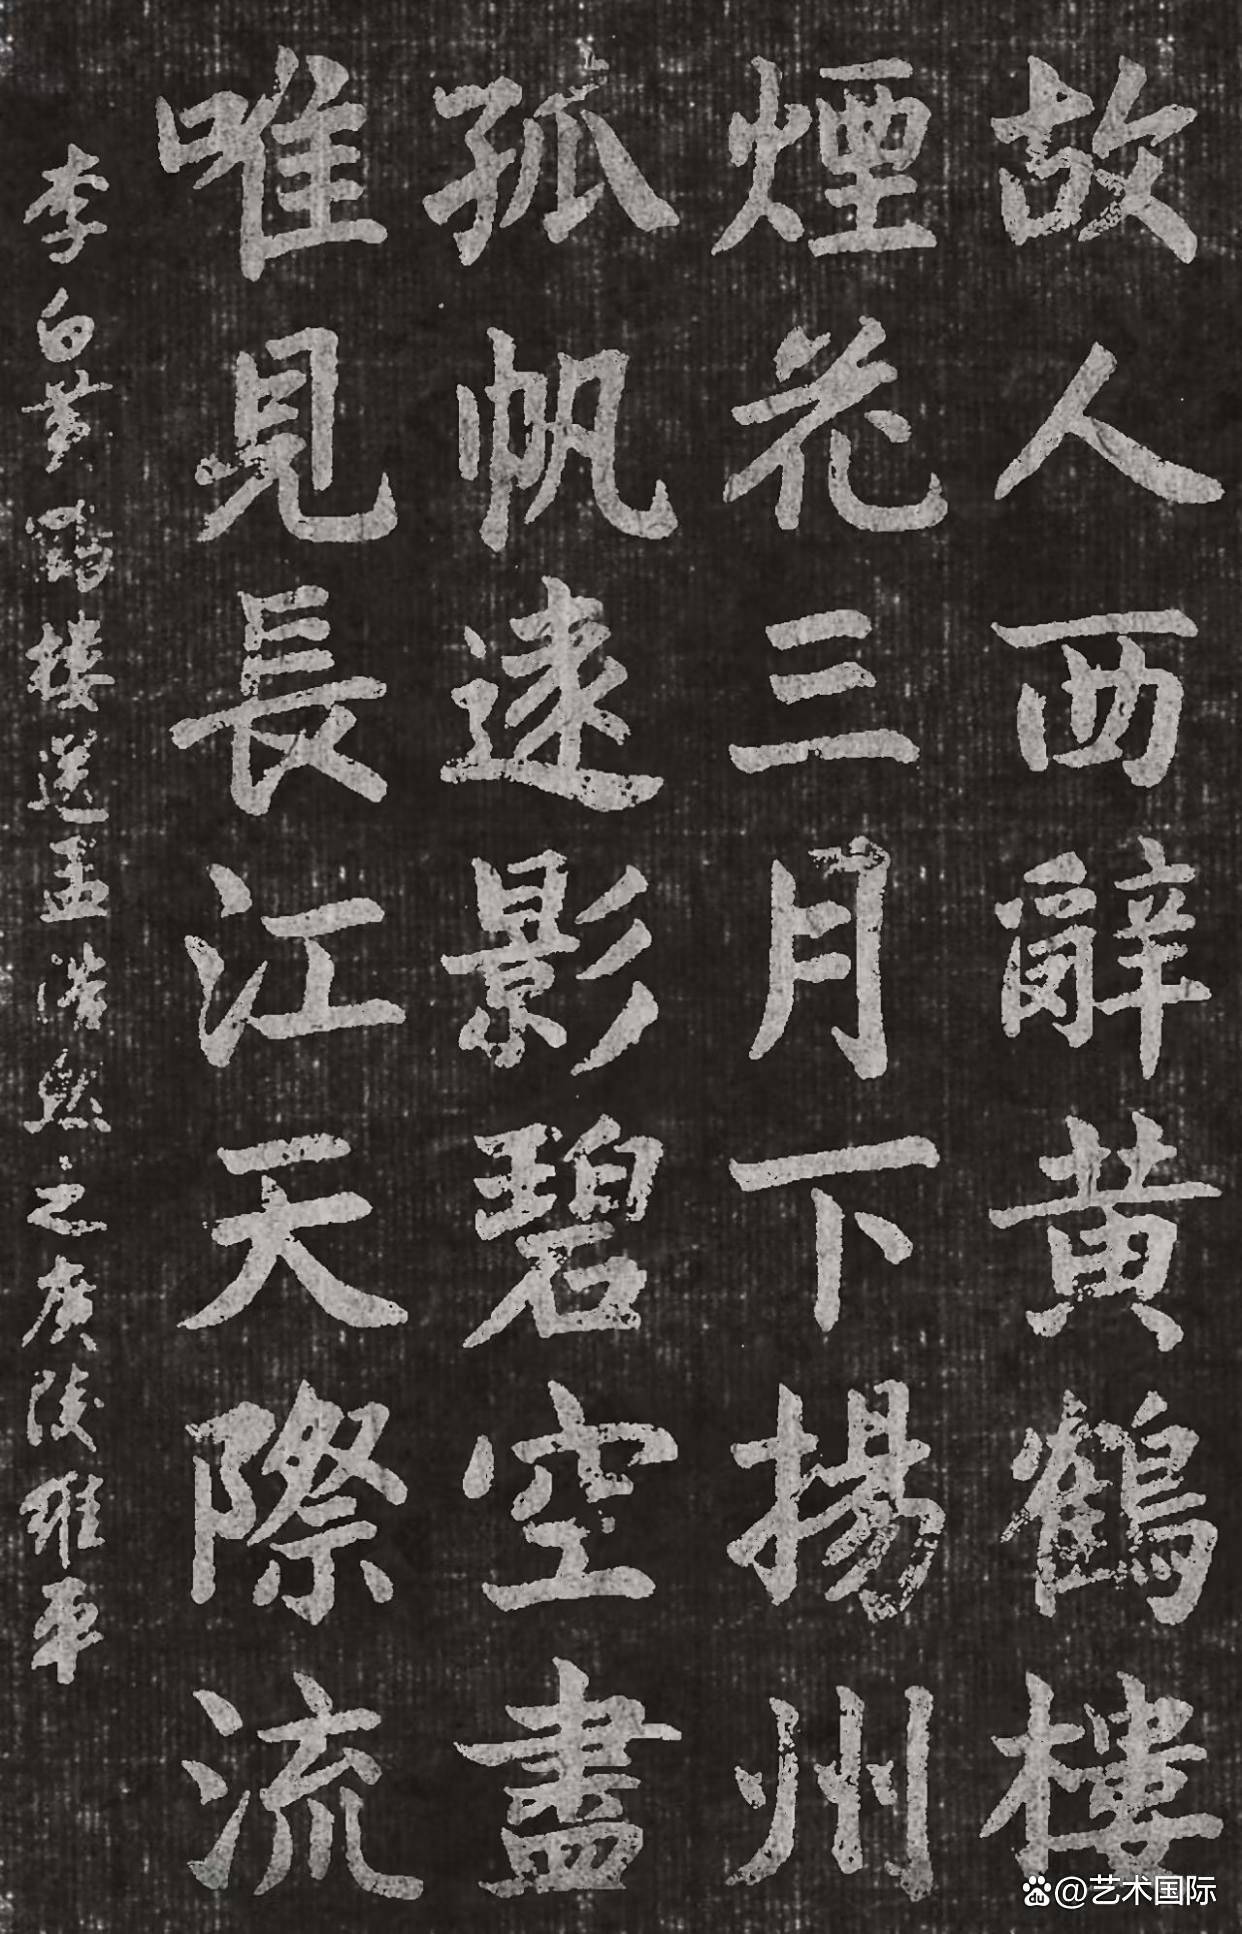 故人西辭黄鶴樓
煙花三月下揚州
孤帆遠影碧空盡
唯見長江天際流
李白黄鶴楼送孟浩然之廣陵維平
du@艺术国际